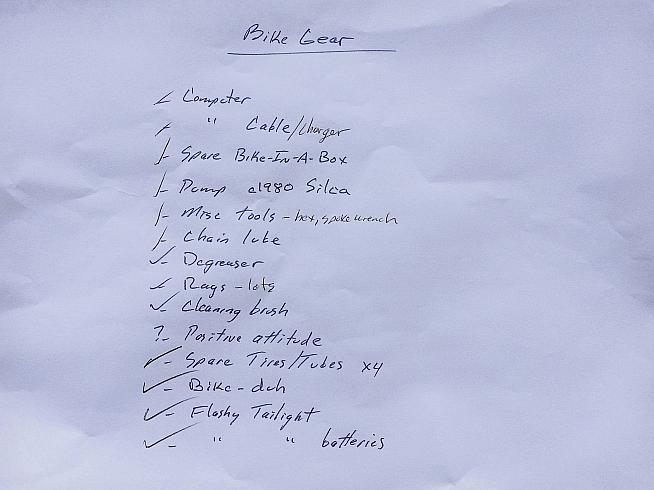 Bike Gear
✓ Computer
✓ " Cable/charger
✓- Spare Bike-In-A-Box
✓- Pump c1980 Silca
✓- Misc tools - hex, spoke wrench
✓- Chain lube
✓- Degreaser
✓- Rags - lots
✓- Cleaning brush
?- Positive attitude
✓- Spare Tires/Tubes x4
✓- Bike - duh
✓- Flashy Tailight
✓- " " batteries